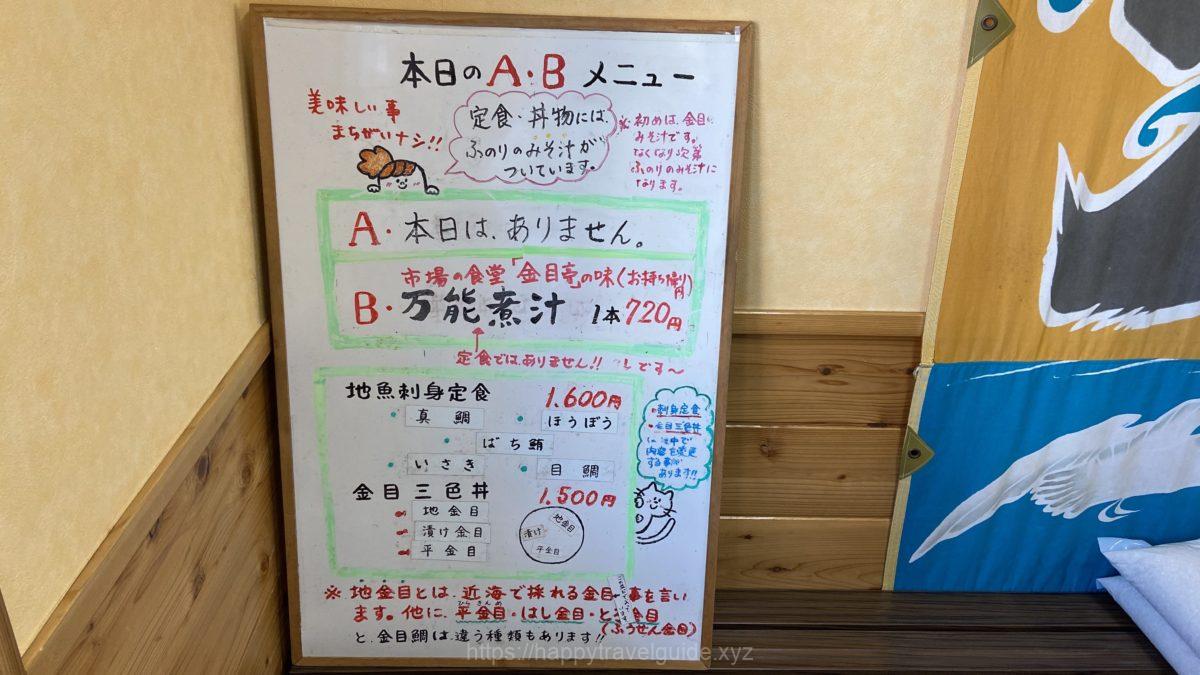 本日のA・Bメニュー
美味しい事
まちがいナシ!!
定食・丼物には
ふのりのみそ汁が
ついています。
※初めは、金目
みそ汁です。
なくなり次第
ふのりのみそ汁に
なります。
A・本日は、ありません。
市場の食堂「金目亭」の味(お持ち帰り)
B・万能煮汁 1本720円
定食では、ありません!! です〜
地魚刺身定食 1.600円
真鯛 ほうぼう
ばち鮪
いさき 目鯛
金目三色丼 1.500円
地金目
漬け金目
平金目
地金目
漬け
平金目
・刺身定食
・金目三色丼
は途中で
内容を変更
する事が
あります!!
※地金目とは、近海で採れる金目 事を言い
ひらきんめ
ます。他に、平金目・はし金目・と 金目
(ふうせん金目)
と、金目鯛は、違う種類もあります!!
https://happytravelguide.xyz